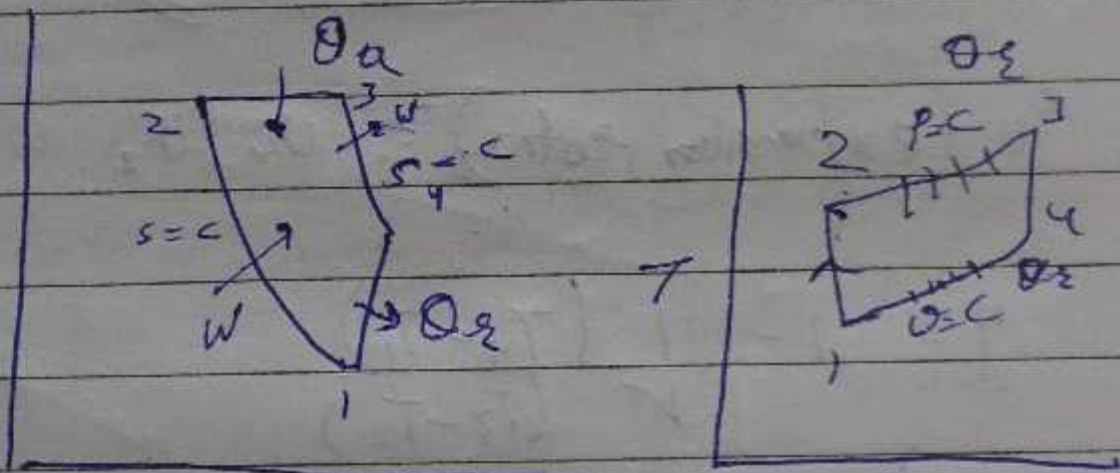 Qa
2
3
W
S = C
4
s = c
W
Qr
1
T
Qr
P=C
2
3
4
Qr
v=C
1